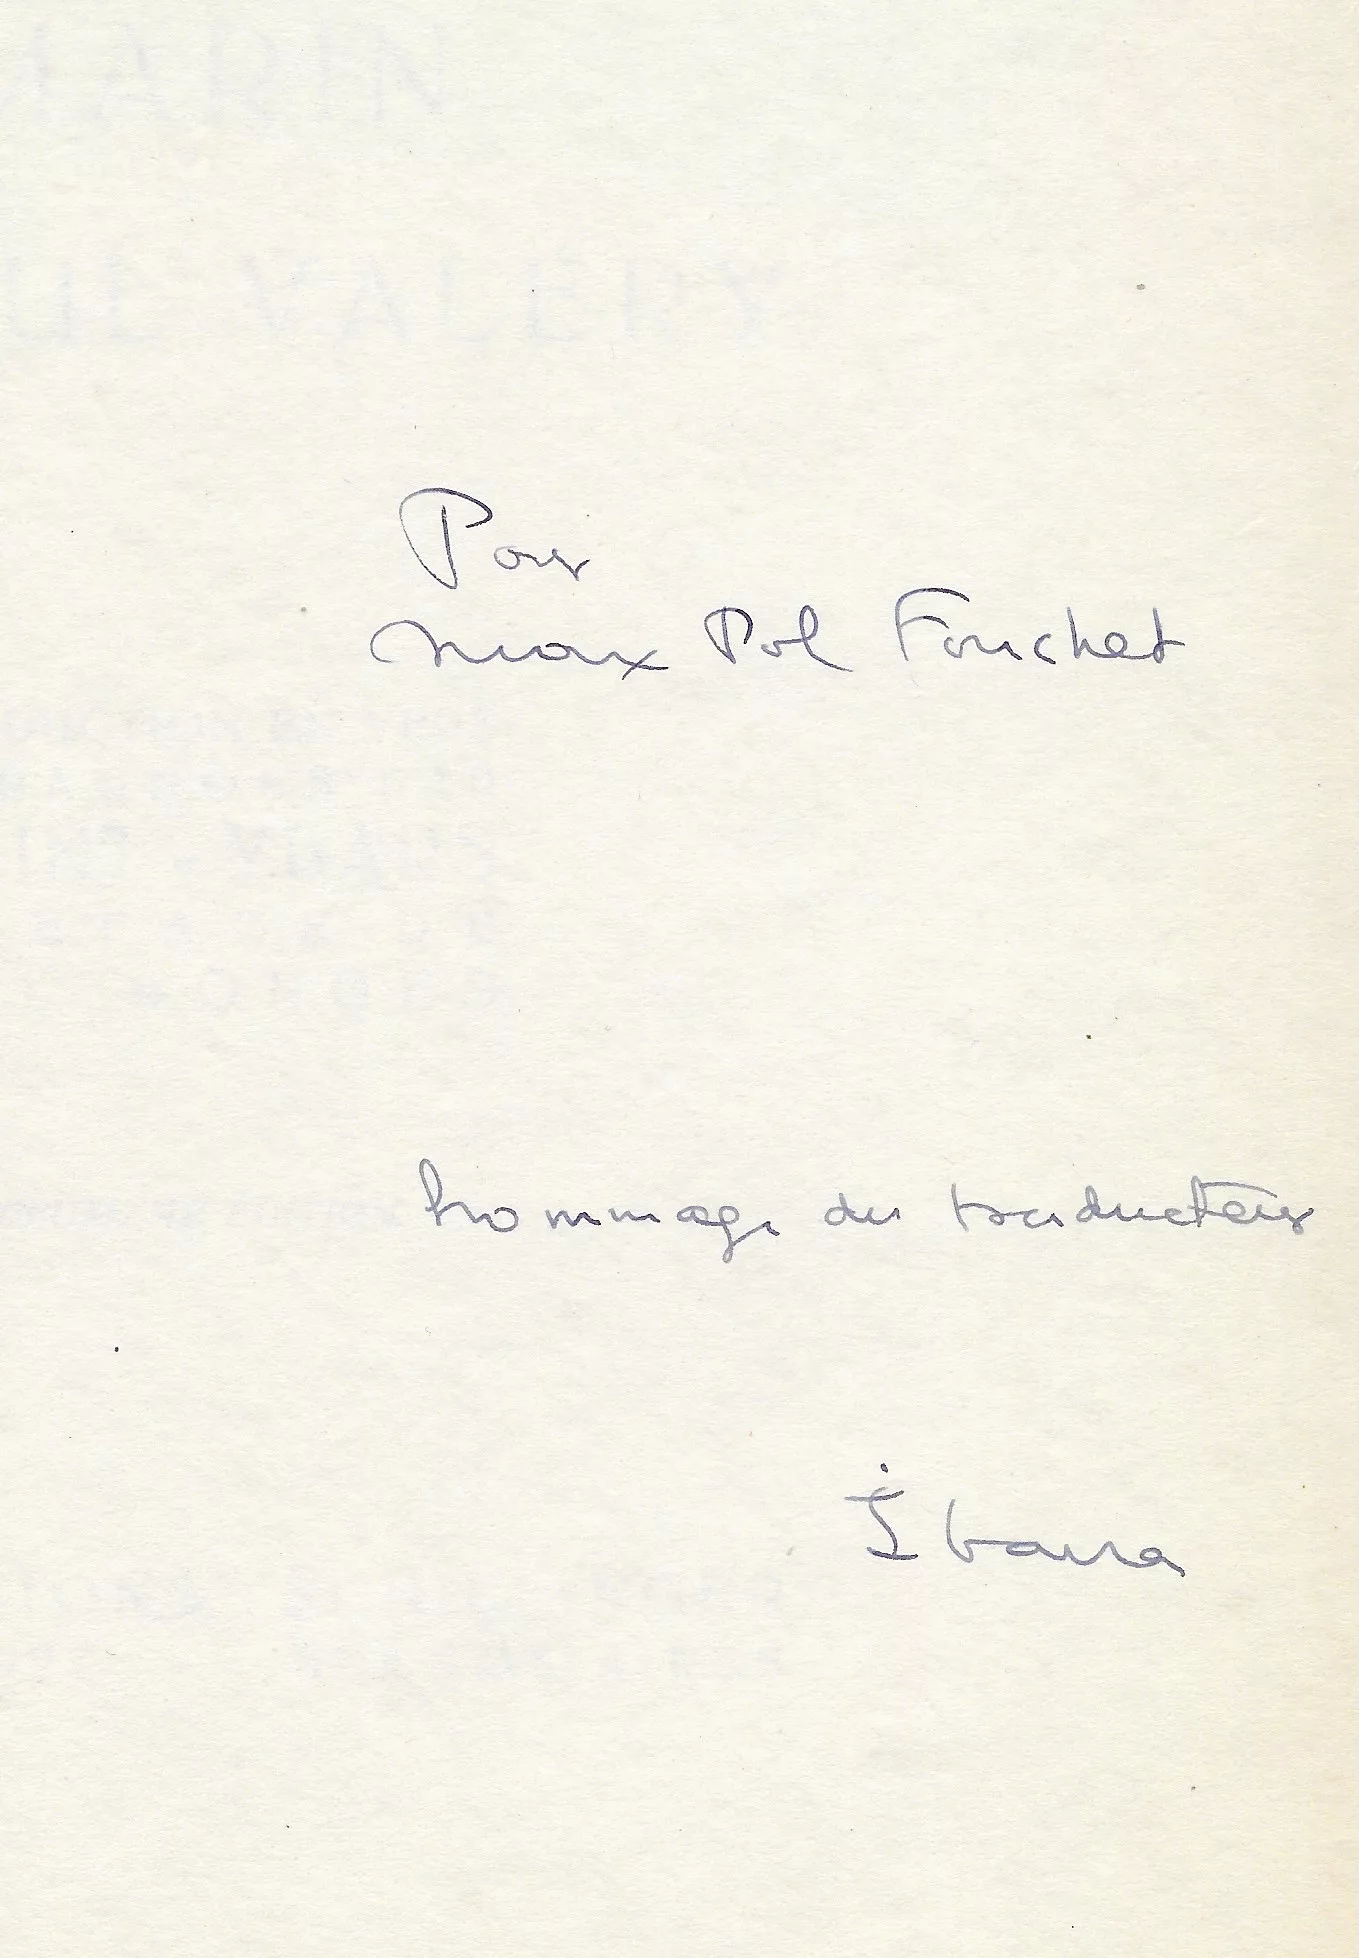 Pour
Max Pol Fouchet
hommage du traducteur
Ibarra